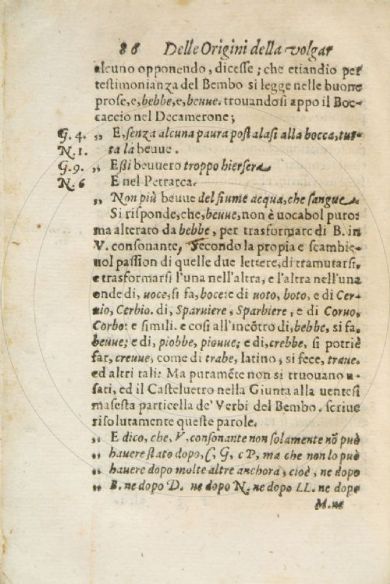 86 Delle Origini della volgar
alcuno opponendo, dicesse; che etiandio per
testimonianza del Bembo si legge nelle buone
prose, e, bebbe, e, beuue. trouandosi appo il Boc-
caccio nel Decamerone;
G. 4. „ E, senza alcuna paura postalasi alla bocca, tut-
N. 1. ta la beuue.
G. 9. „ Eßi beuuero troppo hiersera
N. 6 E nel Petrarca.
„ Non più beuue del fiume acqua, che sangue
Si risponde, che, beuue, non è uocabol puro:
ma alterato da bebbe, per trasformare di B. in
V. consonante, secondo la propia e scambie-
uol passion di quelle due lettere, di tramutarsi,
e trasformarsi l'una nell'altra, e l'altra nell'una
onde di, uoce, si fa, boce: e di uoto, boto, e di Cer-
uio, Cerbio. di, Sparuiere, Sparbiere, e di Coruo,
Corbo: e simili. e cosi all'incõtro di, bebbe, si fa,
beuue; e di, piobbe, piouue; e di, crebbe, si potrie
far, creuue, come di trabe, latino, si fece, traue.
ed altri tali: Ma puramẽte non si truouano u-
sati, ed il Casteluetro nella Giunta alla uentesi
masesta particella de' Verbi del Bembo. scriue
risolutamente queste parole.
„ E dico, che, V. consonante non solamente nõ può
„ hauere stato dopo, C, G, e P, ma che non lo può
„ hauere dopo molte altre anchora, cioè, ne dopo
„ B. ne dopo D. ne dopo N. ne dopo LL. ne dopo
M. ne